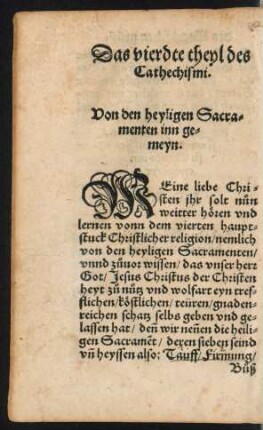 Das vierdte theyl des
Cathechismi.
Von den heyligen Sacra-
menten inn ge-
meyn.
MEine liebe Chri-
sten jhr solt nůn
weitter hören vnd
lernen vonn dem vierten haupt-
stuck Christlicher religion/nemlich
von den heyligen Sacramenten/
vnnd zůuor wissen/das vnser herr
Got/Jesus Christus der Christen
heyt zů nutz vnd wolfart eyn tref-
flichen/köstlichen/teüren/gnaden-
reichen schatz selbs geben vnd ge-
lassen hat/deñ wir neñen die heili-
gen Sacramẽt/deren sieben seind
vñ heyssen also: Tauff/Firmung/
Bůß